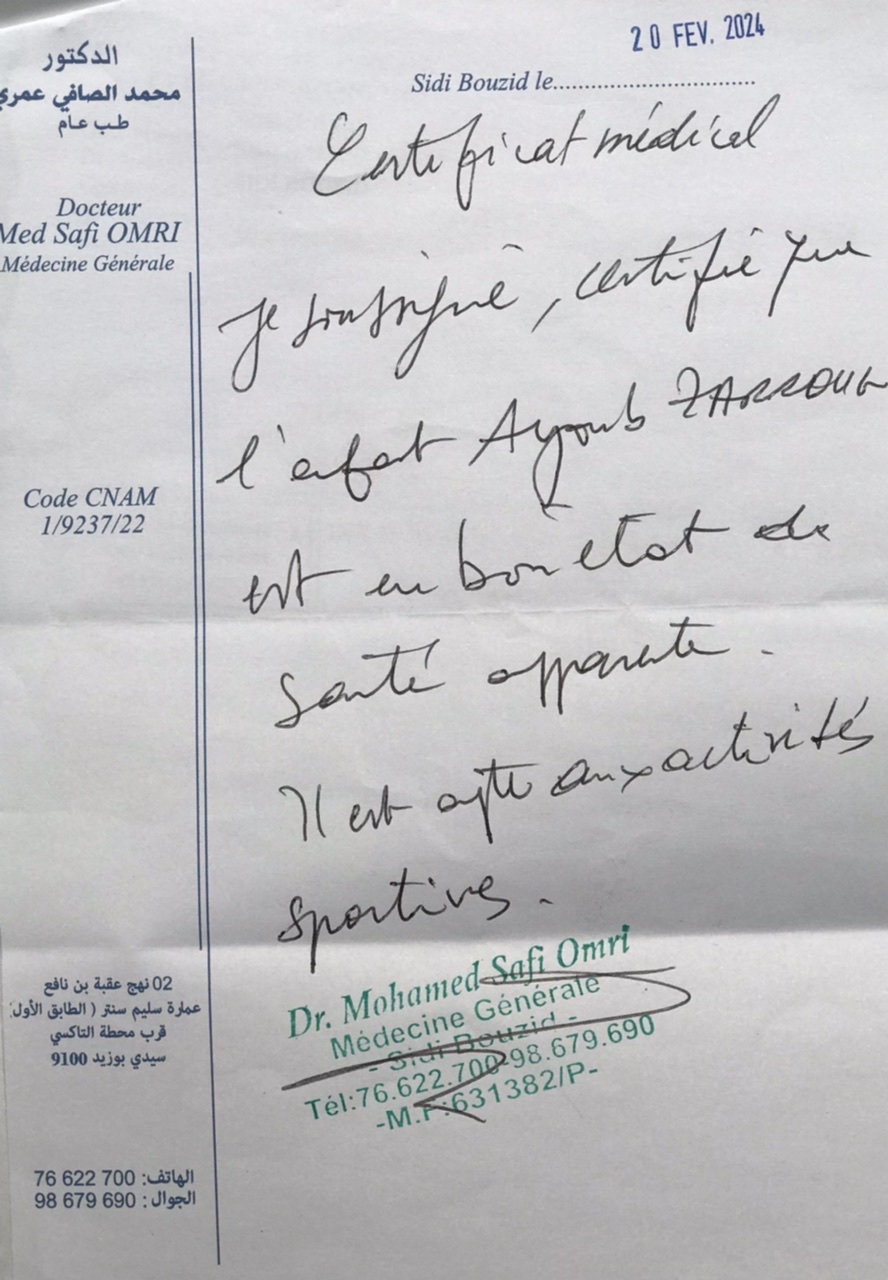 الدكتور
محمد الصافي عمري
طب عام
Docteur
Med Safi OMRI
Médecine Générale
Code CNAM
1/9237/22
02 نهج عقبة بن نافع
عمارة سليم سنتر ( الطابق الأول
قرب محطة التاكسي
سيدي بوزيد 9100
الهاتف: 76 622 700
الجوال : 98 679 690
20 FEV. 2024
Sidi Bouzid le
Certificat médical
Je soussigné, certifie que
l'enfant Ayoub ZARROUG
est en bon état de
santé apparente.
Il est apte aux activités
sportives.
Dr. Mohamed Safi Omri
Médecine Générale
- Sidi Bouzid -
Tél:76.622.700-98.679.690
-M.F:631382/P-